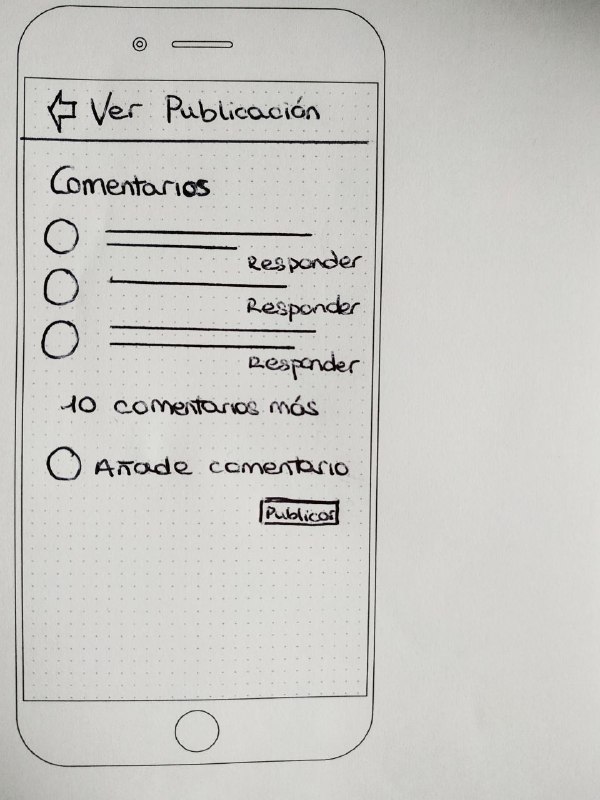 Ver Publicación
Comentarios
Responder
Responder
Responder
10 comentarios más
Añade comentario
Publicar